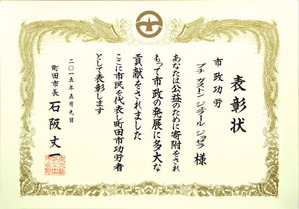 表彰状
市政功労
プチ ガストン ジラール ジョゼフ 様
あなたは公益のために寄附をされ
もって市政の発展に多大な
貢献をされました
ここに市民を代表し町田市功労者
として表彰します
二〇一五年五月九日
町田市長 石阪丈一